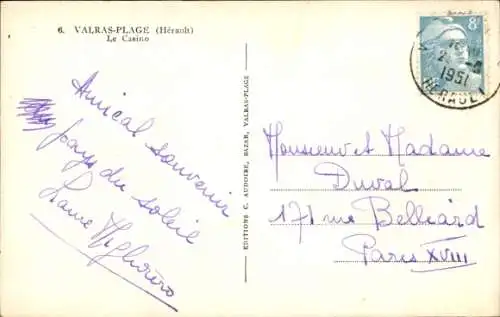 6. VALRAS-PLAGE (Hérault)
Le Casino
Amical souvenir
du pays du soleil
EDITIONS C. AUDOUBE, BAZAR, VALRAS-PLAGE
8F
1951
HERAULT
Monsieur et Madame
Duval
171 rue Belliard
Paris XVIII